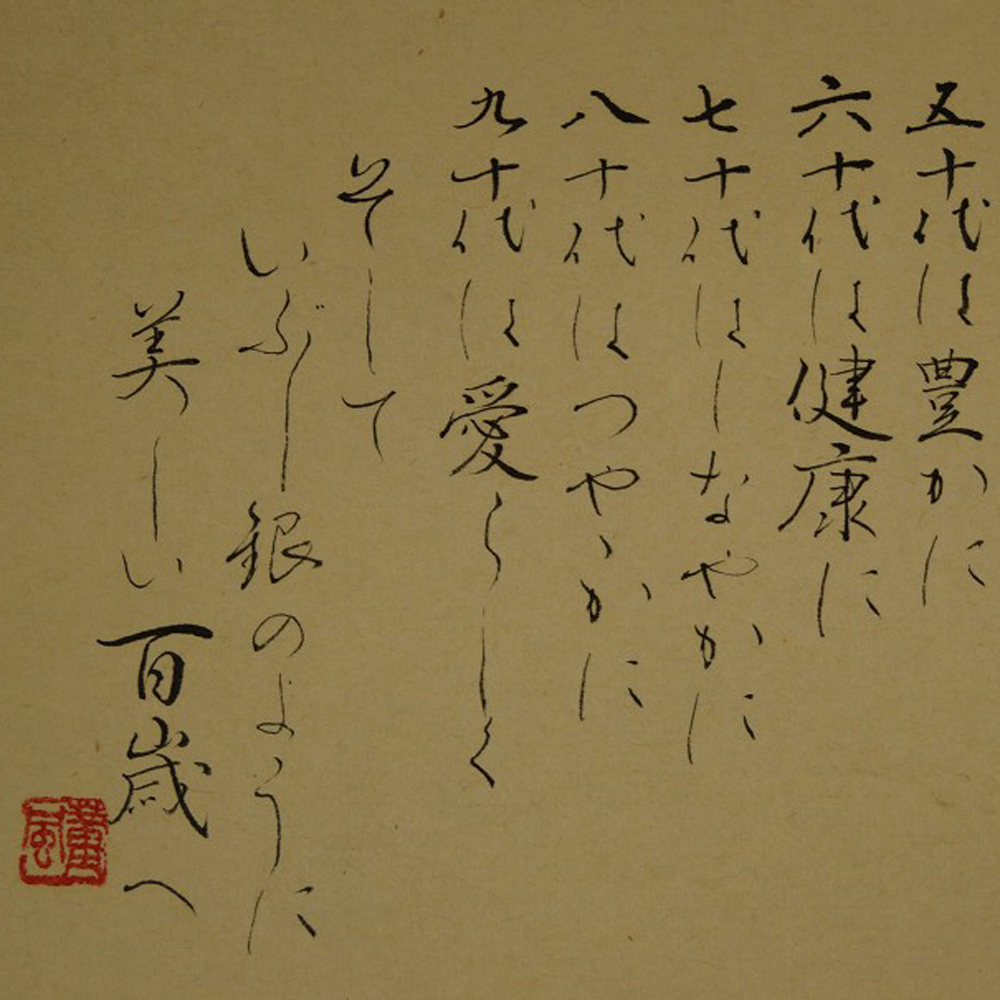 五十代は豊かに
六十代は健康に
七十代はしなやかに
八十代はつやゝかに
九十代は愛らしく
そして
いぶし銀のように
美しい百歳へ